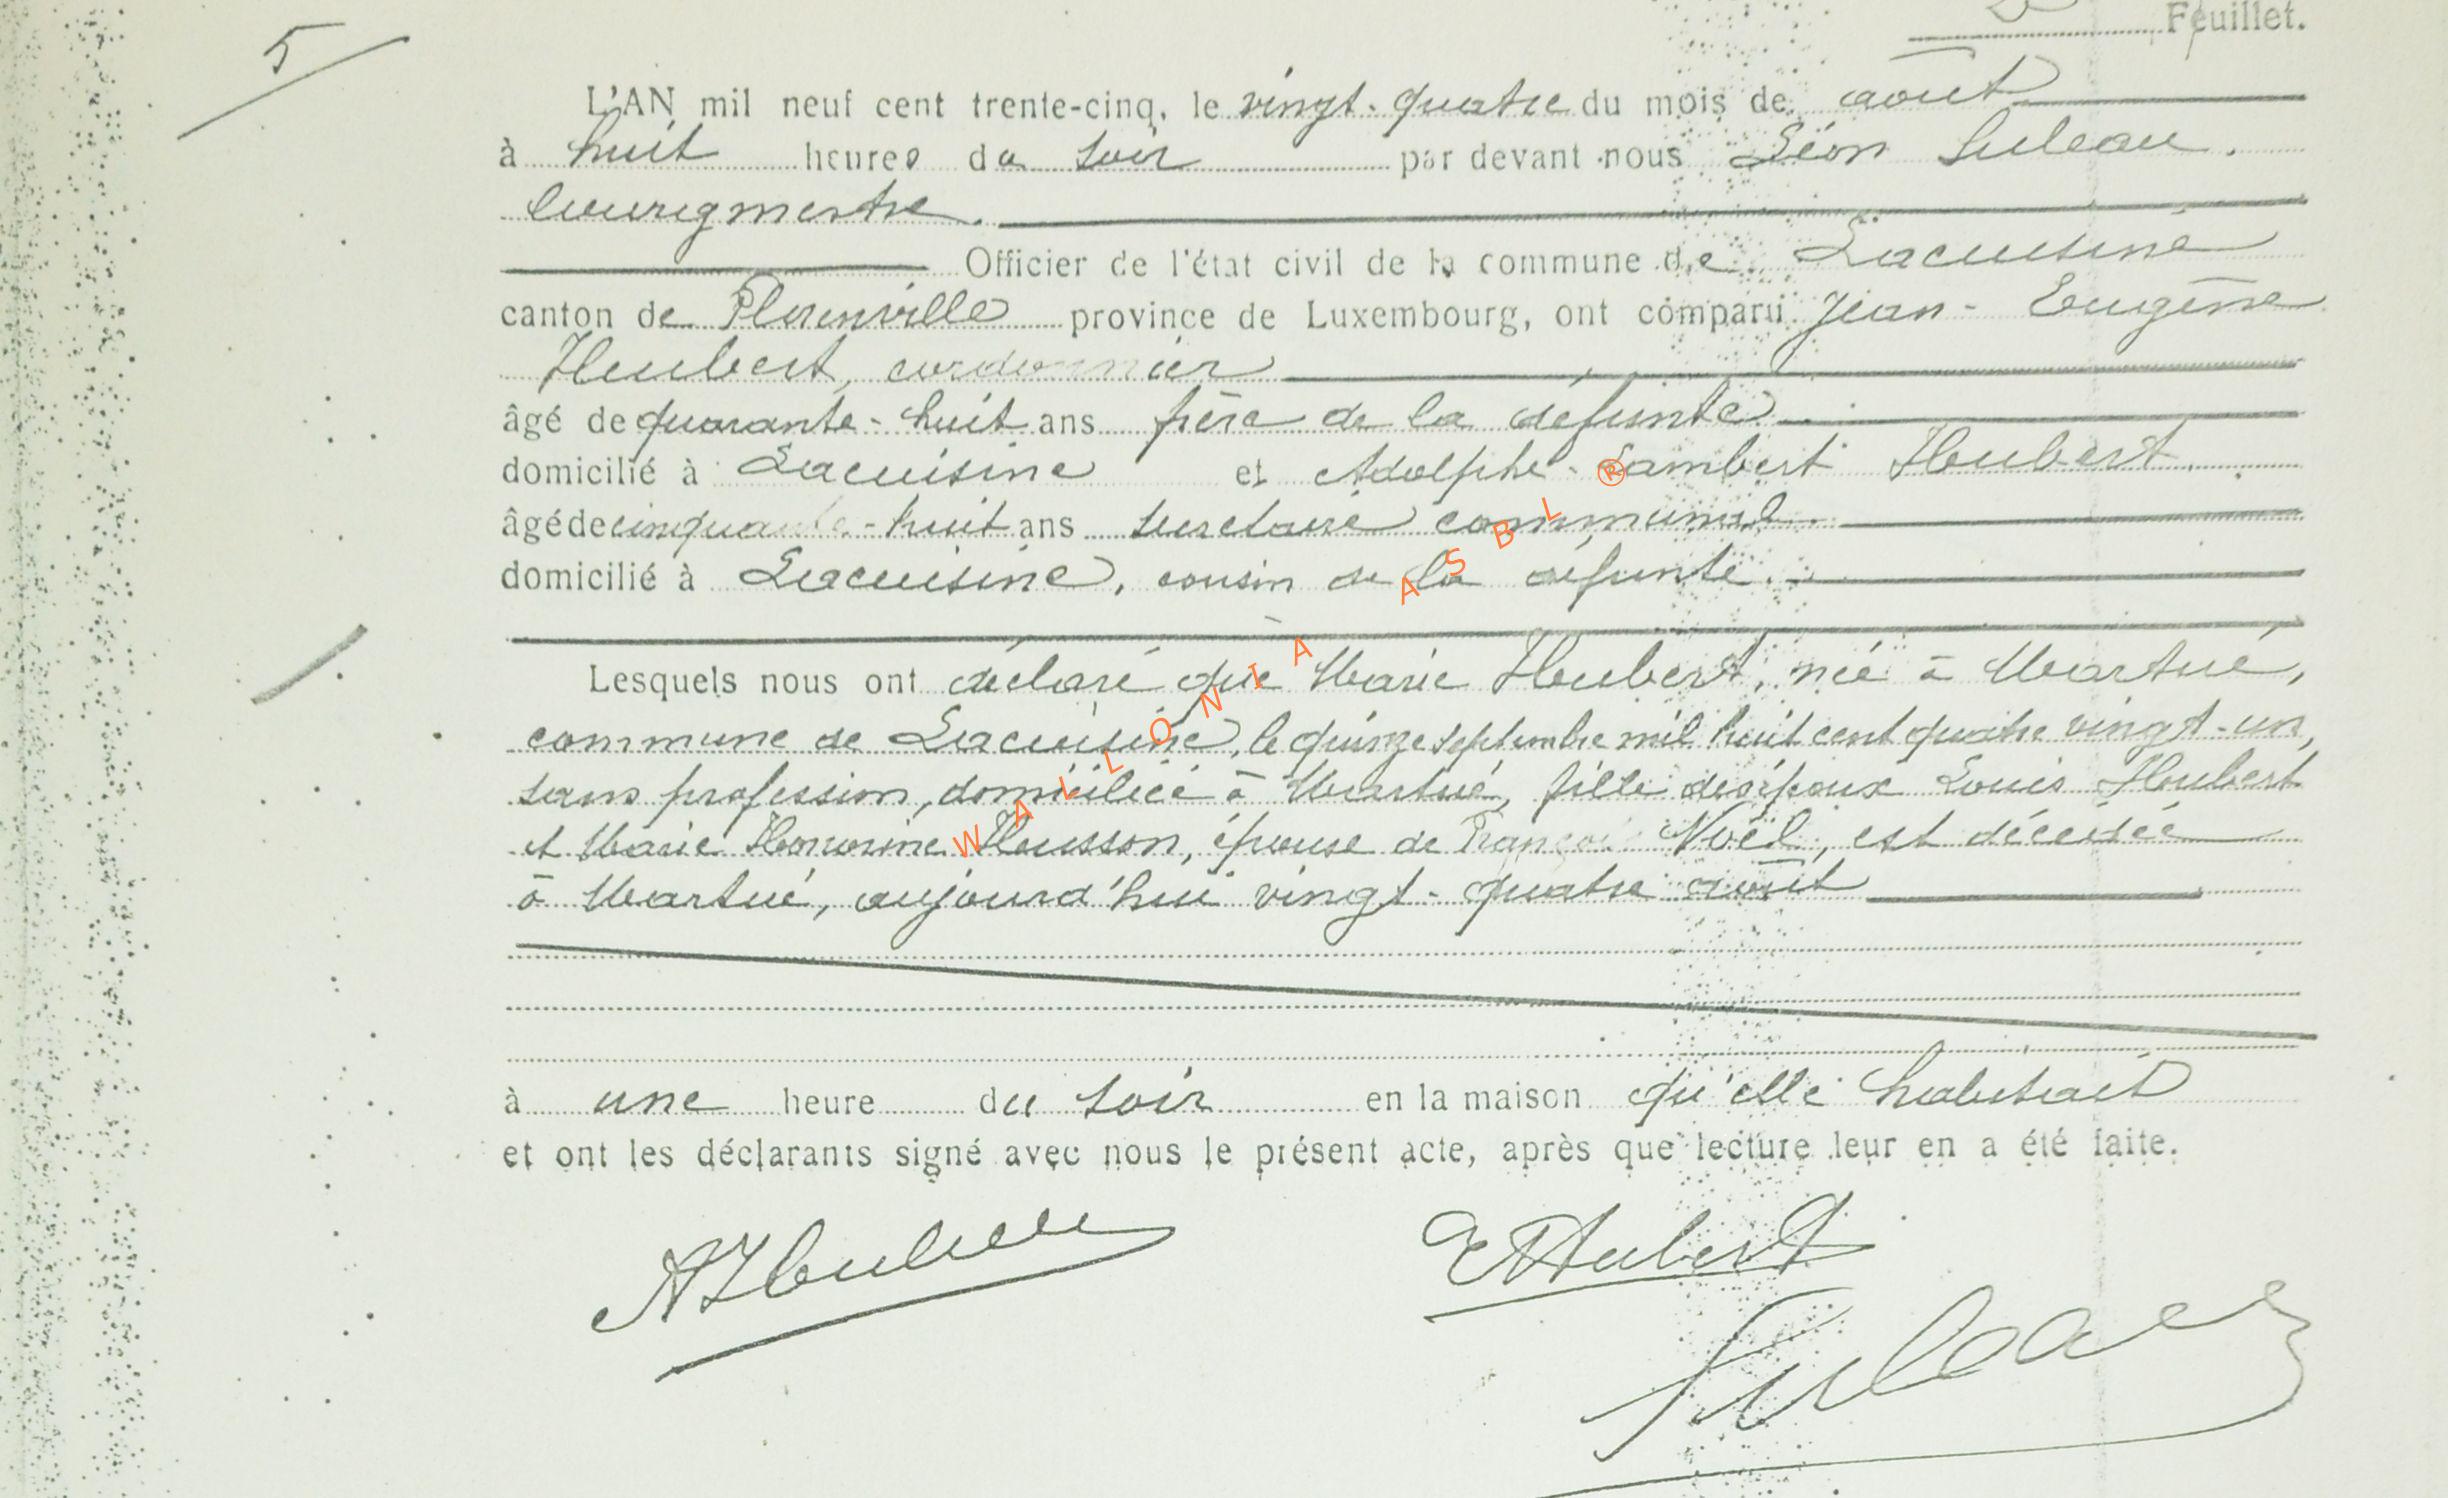 5
Feuillet.
L'AN mil neuf cent trente-cinq, le vingt-quatre du mois de août
à huit heures du soir par devant nous Léon Suleau.
bourgmestre.
Officier de l'état civil de la commune de Lacuisine
canton de Florenville province de Luxembourg, ont comparu Jean-Eugène
Hubert, cordonnier
âgé de quarante-huit ans frère de la défunte
domicilié à Lacuisine et Adolphe-Lambert Hubert
âgé de cinquante-huit ans secretaire communal.
domicilié à Lacuisine, cousin de la défunte.
Lesquels nous ont déclaré que Marie Hubert, née à Martué,
commune de Lacuisine, le quinze septembre mil huit cent quatre vingt-un,
sans profession, domiciliée à Martué, fille des époux Louis Hubert
et Marie Honorine Husson, épouse de François Noël, est décédée
à Martué, aujourd'hui vingt-quatre août
à une heure du soir en la maison qu'elle habitait
et ont les déclarants signé avec nous le présent acte, après que lecture leur en a été faite.
AHubert EHubert
Suleau
WALLONIA ASBL ®